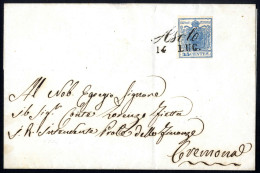 Asolo
14 LUG.
Al Nob. Egregio Signore
il Sig.r Conte Lorenzo
I. R. Intendente Prov.le delle Finanze
Cremona